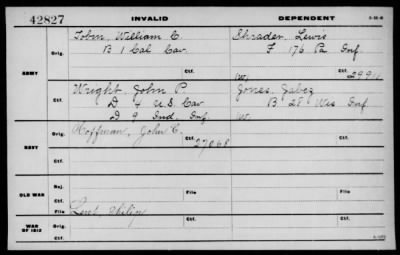 42827 INVALID DEPENDENT 3-25-6
Tobin, William C. Shrader, Lewis
Orig. B 1 Cal Cav. F 176 Pa Inf.
ARMY (W) Ctf. 299
Wright, John P. Jones, Jabez
Ctf. D 4 U.S. Cav B 28 Wis Inf.
D 9 Ind. Inf. W.
Hoffman, John C.
Orig. Ctf. 27068
NAVY
Ctf.
Inj. Ctf.
OLD WAR File File
Ctf.
File Lent, Philip
WAR OF 1812 Orig. Ctf.